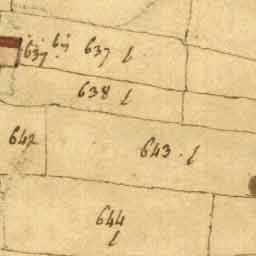 637 637 l
638 l
642 643 · l
644
l